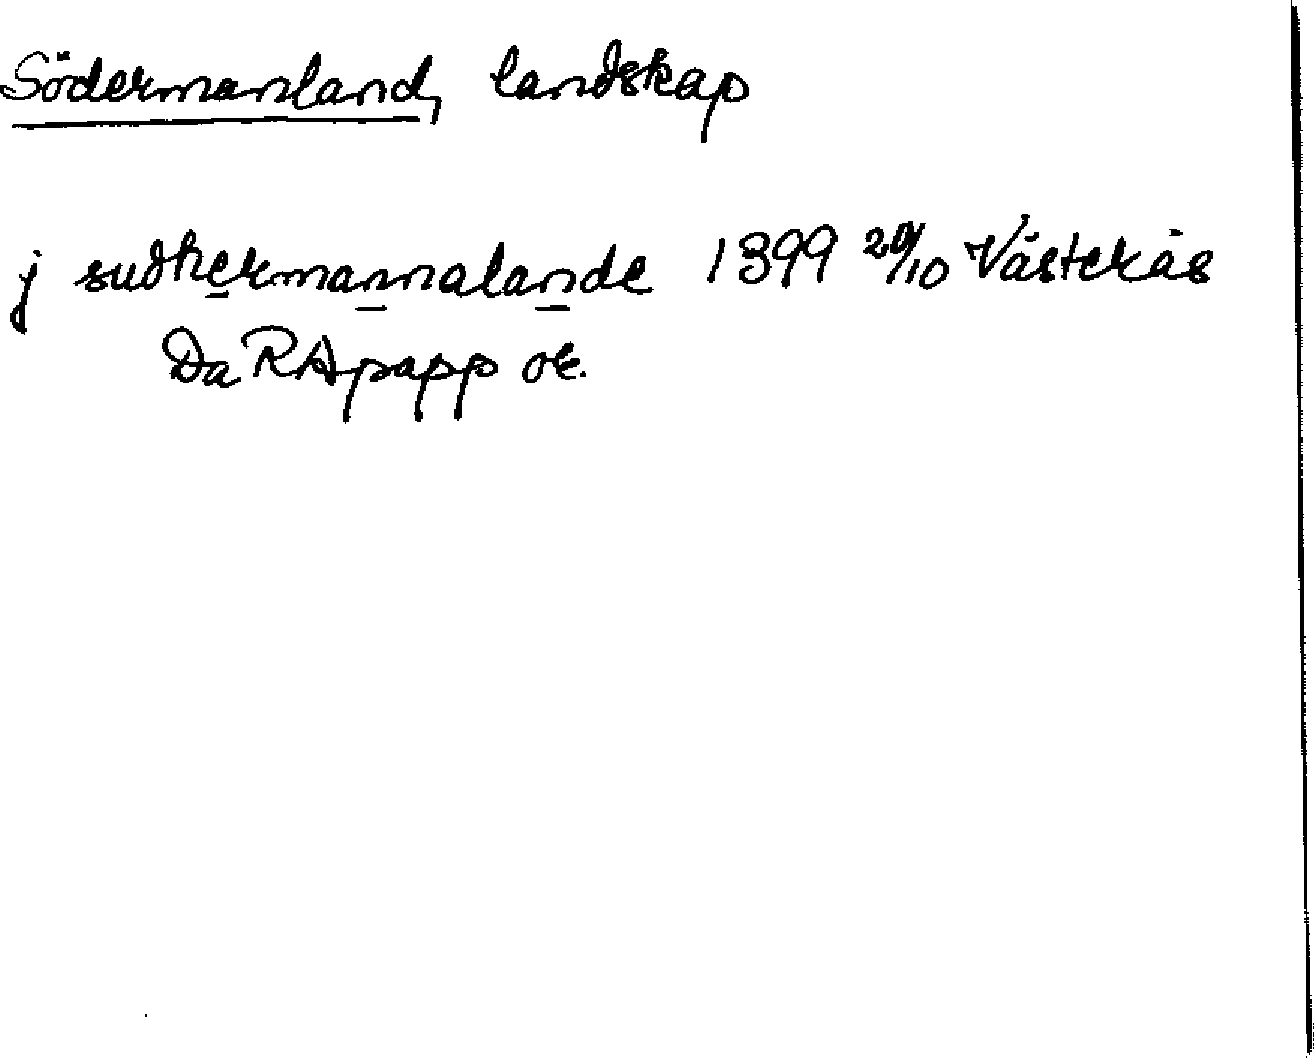 Södermanland, landskap
j sudhermannalande 1399 20/10 Västerås
Da RApapp or.